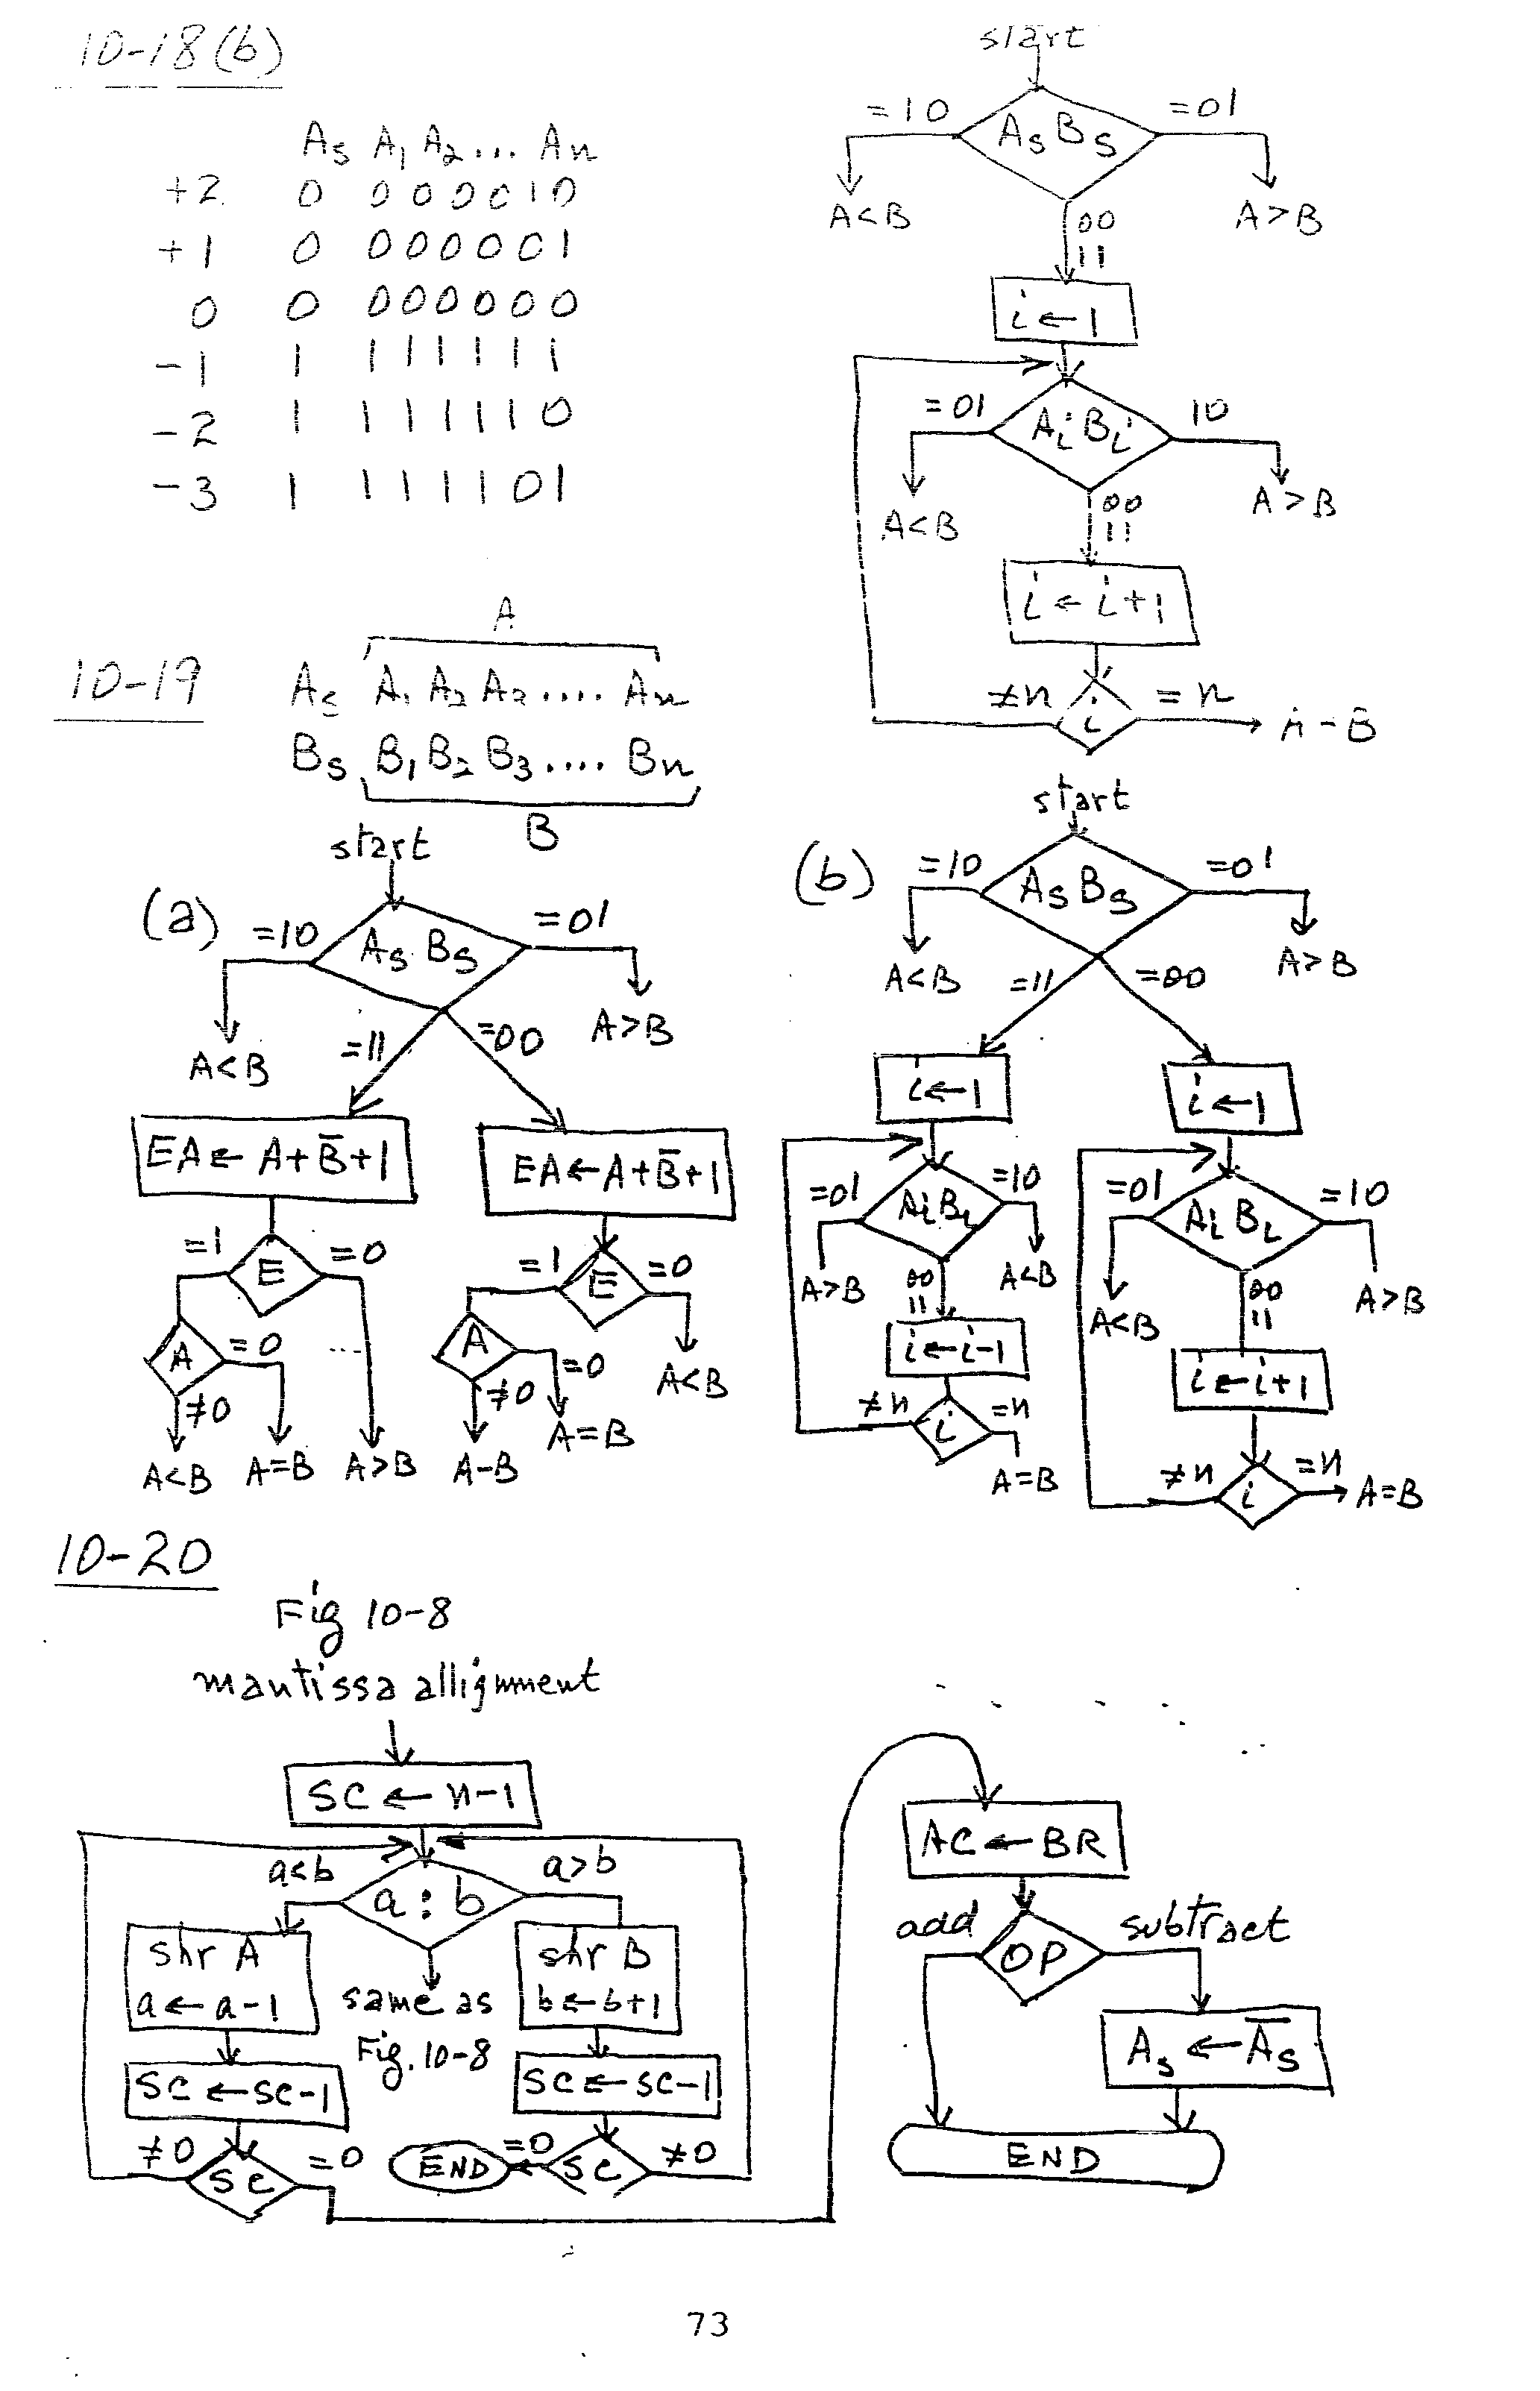 10-18(b)
As A1 A2 ... An
+2 0 0 0 0 0 1 0
+1 0 0 0 0 0 0 1
0 0 0 0 0 0 0 0
-1 1 1 1 1 1 1 1
-2 1 1 1 1 1 1 0
-3 1 1 1 1 1 0 1
start
=10 AsBs =01
A<B
A>B
00
11
i←1
=01 AiBi 10
A<B
A>B
00
11
i←i+1
≠n i =n
A-B
10-19
A
As A1 A2 A3 .... An
Bs B1 B2 B3 .... Bn
B
(a)
start
=10 As Bs =01
A<B
A>B
=11 =00
EA←A+B̅+1
EA←A+B̅+1
=1 E =0
=1 E =0
A =0
≠0
A =0
≠0
A<B
A<B A=B A>B
A-B
A=B
(b)
start
=10 AsBs =01
A<B
A>B
=11 =00
i←1
i←1
=01 AiBi =10
=01 AiBi =10
A>B
00
11
A<B
A<B
00
11
A>B
i←i-1
i←i+1
≠n i =n
A=B
≠n i =n
A=B
10-20
Fig 10-8
mantissa allignment
SC←n-1
a<b a:b a>b
shr A
a←a-1
same as
Fig. 10-8
shr B
b←b+1
SC←SC-1
SC←SC-1
≠0 SC =0
END =0 SC ≠0
AC←BR
add OP subtract
As←A̅s
END
73